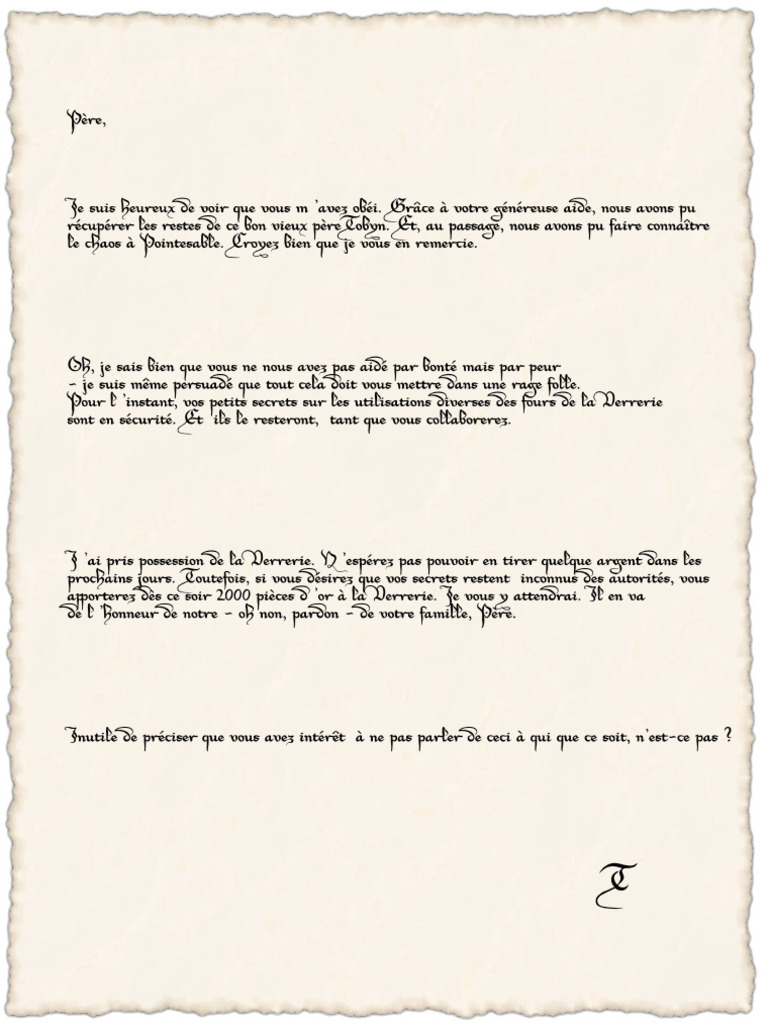 Père,
Je suis heureux de voir que vous m 'avez obéi. Grâce à votre généreuse aide, nous avons pu
récupérer les restes de ce bon vieux père Tobyn. Et, au passage, nous avons pu faire connaître
le chaos à Pointesable. Croyez bien que je vous en remercie.
Oh, je sais bien que vous ne nous avez pas aidé par bonté mais par peur
- je suis même persuadé que tout cela doit vous mettre dans une rage folle.
Pour l 'instant, vos petits secrets sur les utilisations diverses des fours de la Verrerie
sont en sécurité. Et ils le resteront, tant que vous collaborerez.
J 'ai pris possession de la Verrerie. N 'espérez pas pouvoir en tirer quelque argent dans les
prochains jours. Toutefois, si vous désirez que vos secrets restent inconnus des autorités, vous
apporterez dès ce soir 2000 pièces d 'or à la Verrerie. Je vous y attendrai. Il en va
de l 'honneur de notre - oh non, pardon - de votre famille, Père.
Inutile de préciser que vous avez intérêt à ne pas parler de ceci à qui que ce soit, n'est-ce pas ?
T